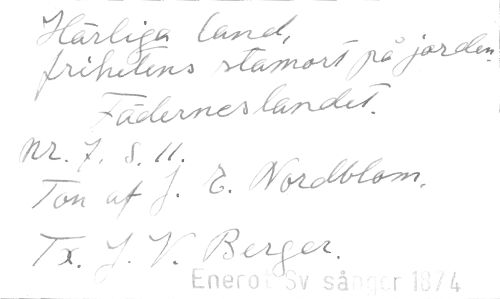 Härliga land,
frihetens stamort på jorden.
Fäderneslandet.
Nr. 7. S. 11.
Ton af J. E. Nordblom.
Tx. J. V. Berger.
Enerot Sv sånger 1874